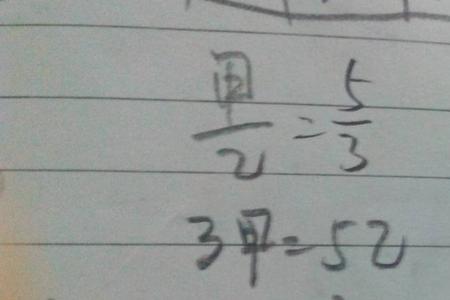 甲/乙=5/3
3甲=5乙